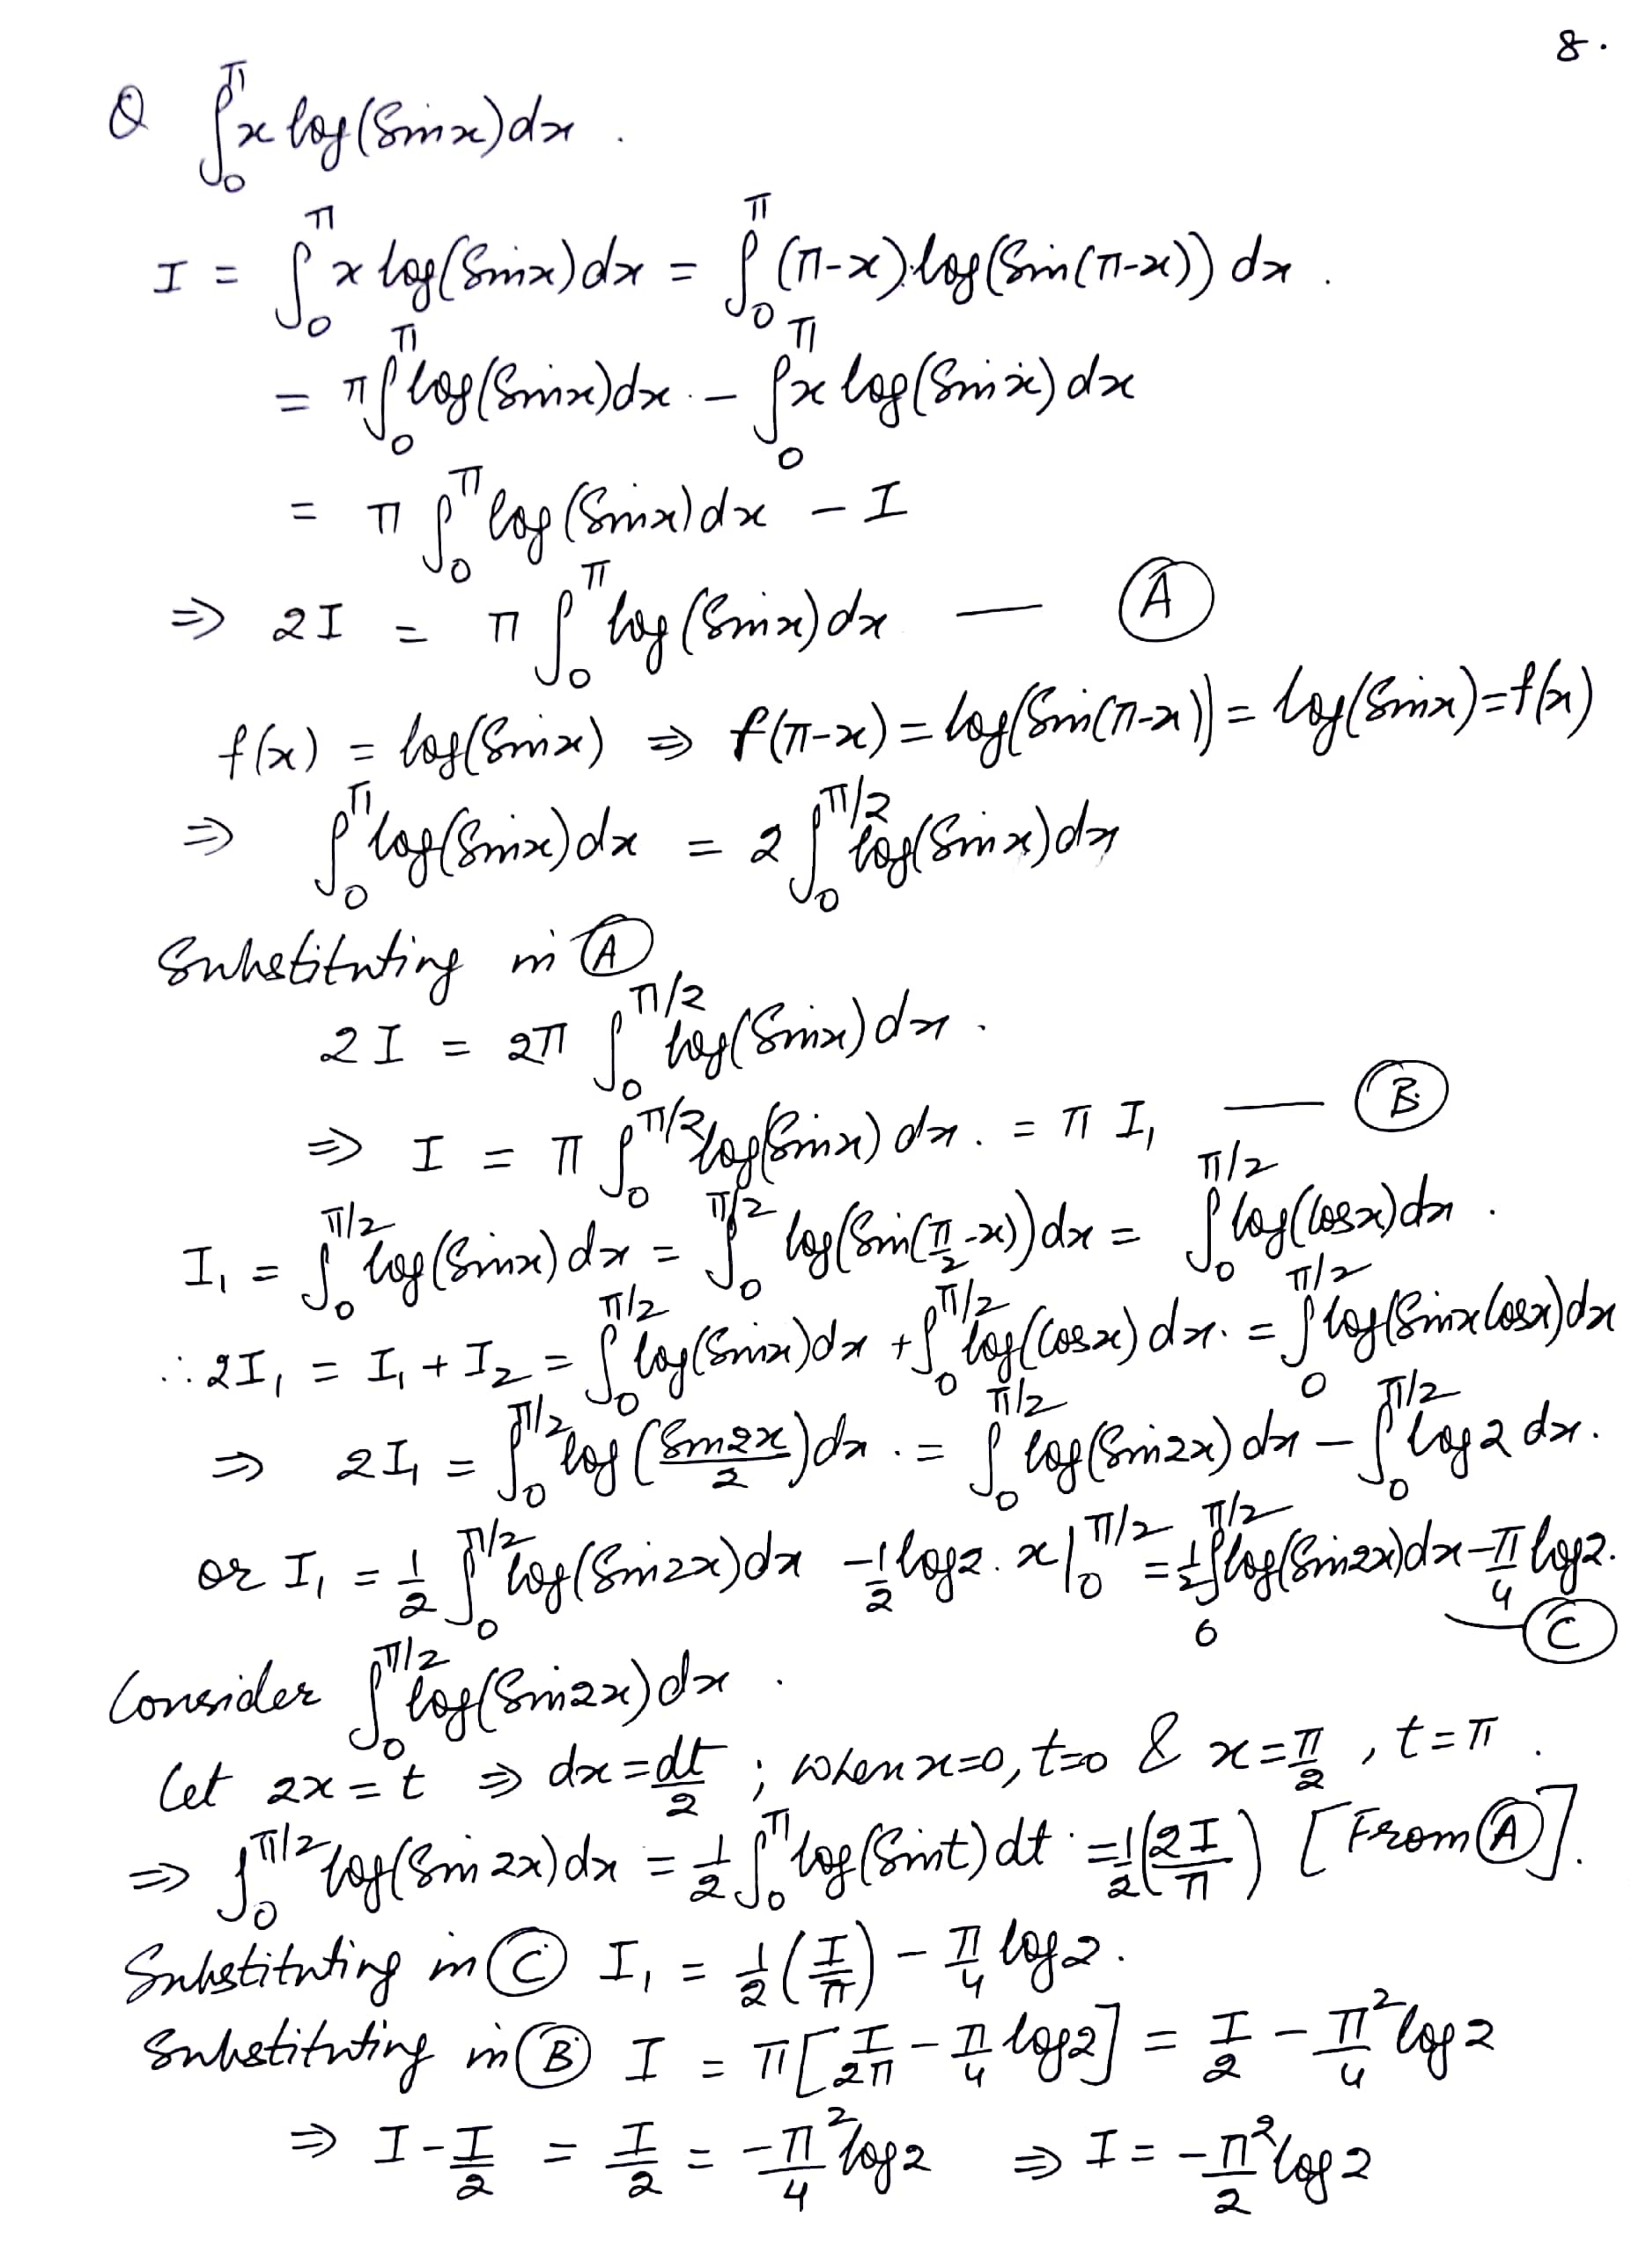 8.
Q ∫₀^π x log(Sinx)dx .
I = ∫₀^π x log(Sinx)dx = ∫₀^π (π-x).log(Sin(π-x)) dx .
= π∫₀^π log(Sinx)dx - ∫₀^π x log(Sinx) dx
= π ∫₀^π log(Sinx)dx - I
⇒ 2I = π ∫₀^π log(Sinx)dx — Ⓐ
f(x) = log(Sinx) ⇒ f(π-x) = log(Sin(π-x)) = log(Sinx)=f(x)
⇒ ∫₀^π log(Sinx)dx = 2∫₀^{π/2} log(Sinx)dx
Substituting in Ⓐ
2I = 2π ∫₀^{π/2} log(Sinx)dx .
⇒ I = π ∫₀^{π/2} log(Sinx) dx . = π I₁ — Ⓑ
I₁ = ∫₀^{π/2} log(Sinx)dx = ∫₀^{π/2} log(Sin(π/2-x))dx = ∫₀^{π/2} log(Cosx)dx .
∴ 2I₁ = I₁ + I₂ = ∫₀^{π/2} log(Sinx)dx + ∫₀^{π/2} log(Cosx)dx. = ∫₀^{π/2} log(SinxCosx)dx
⇒ 2I₁ = ∫₀^{π/2} log(Sin2x/2)dx . = ∫₀^{π/2} log(Sin2x)dx - ∫₀^{π/2} log2 dx.
or I₁ = 1/2 ∫₀^{π/2} log(Sin2x)dx - 1/2 log2. x|₀^{π/2} = 1/2 ∫₀^{π/2} log(Sin2x)dx - π/4 log2. — Ⓒ
Consider ∫₀^{π/2} log(Sin2x)dx .
Let 2x = t ⇒ dx = dt/2 ; when x=0, t=0 & x=π/2 , t=π .
⇒ ∫₀^{π/2} log(Sin2x)dx = 1/2 ∫₀^π log(Sint)dt = 1/2(2I/π) [From Ⓐ].
Substituting in Ⓒ I₁ = 1/2(I/π) - π/4 log2 .
Substituting in Ⓑ I = π[I/2π - π/4 log2] = I/2 - π²/4 log2
⇒ I - I/2 = I/2 = -π²/4 log2 ⇒ I = -π²/2 log2